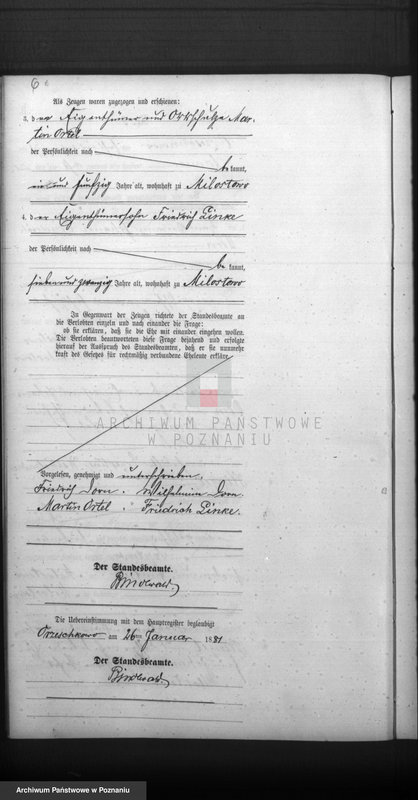 6
Als Zeugen waren zugezogen und erschienen:
3. der Eigenthümer und Ortsschulze Mar-
tin Ortel
der Persönlichkeit nach
be kannt,
ein und fünfzig Jahre alt, wohnhaft zu Milostowo
4. der Eigenthümersohn Friedrich Linke
der Persönlichkeit nach
be kannt,
sieben und zwanzig Jahre alt, wohnhaft zu Milostowo
In Gegenwart der Zeugen richtete der Standesbeamte an
die Verlobten einzeln und nach einander die Frage:
ob sie erklären, daß sie die Ehe mit einander eingehen wollen.
Die Verlobten beantworteten diese Frage bejahend und erfolgte
hierauf der Ausspruch des Standesbeamten, daß er sie nunmehr
kraft des Gesetzes für rechtmäßig verbundene Eheleute erkläre.
ARCHIWUM PAŃSTWOWE
W POZNANIU
Vorgelesen, genehmigt und unterschrieben.
Friedrich Dorn. Wilhelmine Dorn.
Martin Ortel. Friedrich Linke.
Der Standesbeamte.
Die Uebereinstimmung mit dem Hauptregister beglaubigt
Orzeschkowo am 26ten Januar 1881
Der Standesbeamte.
Archiwum Państwowe w Poznaniu
Archiwum Państwowe w Poznaniu